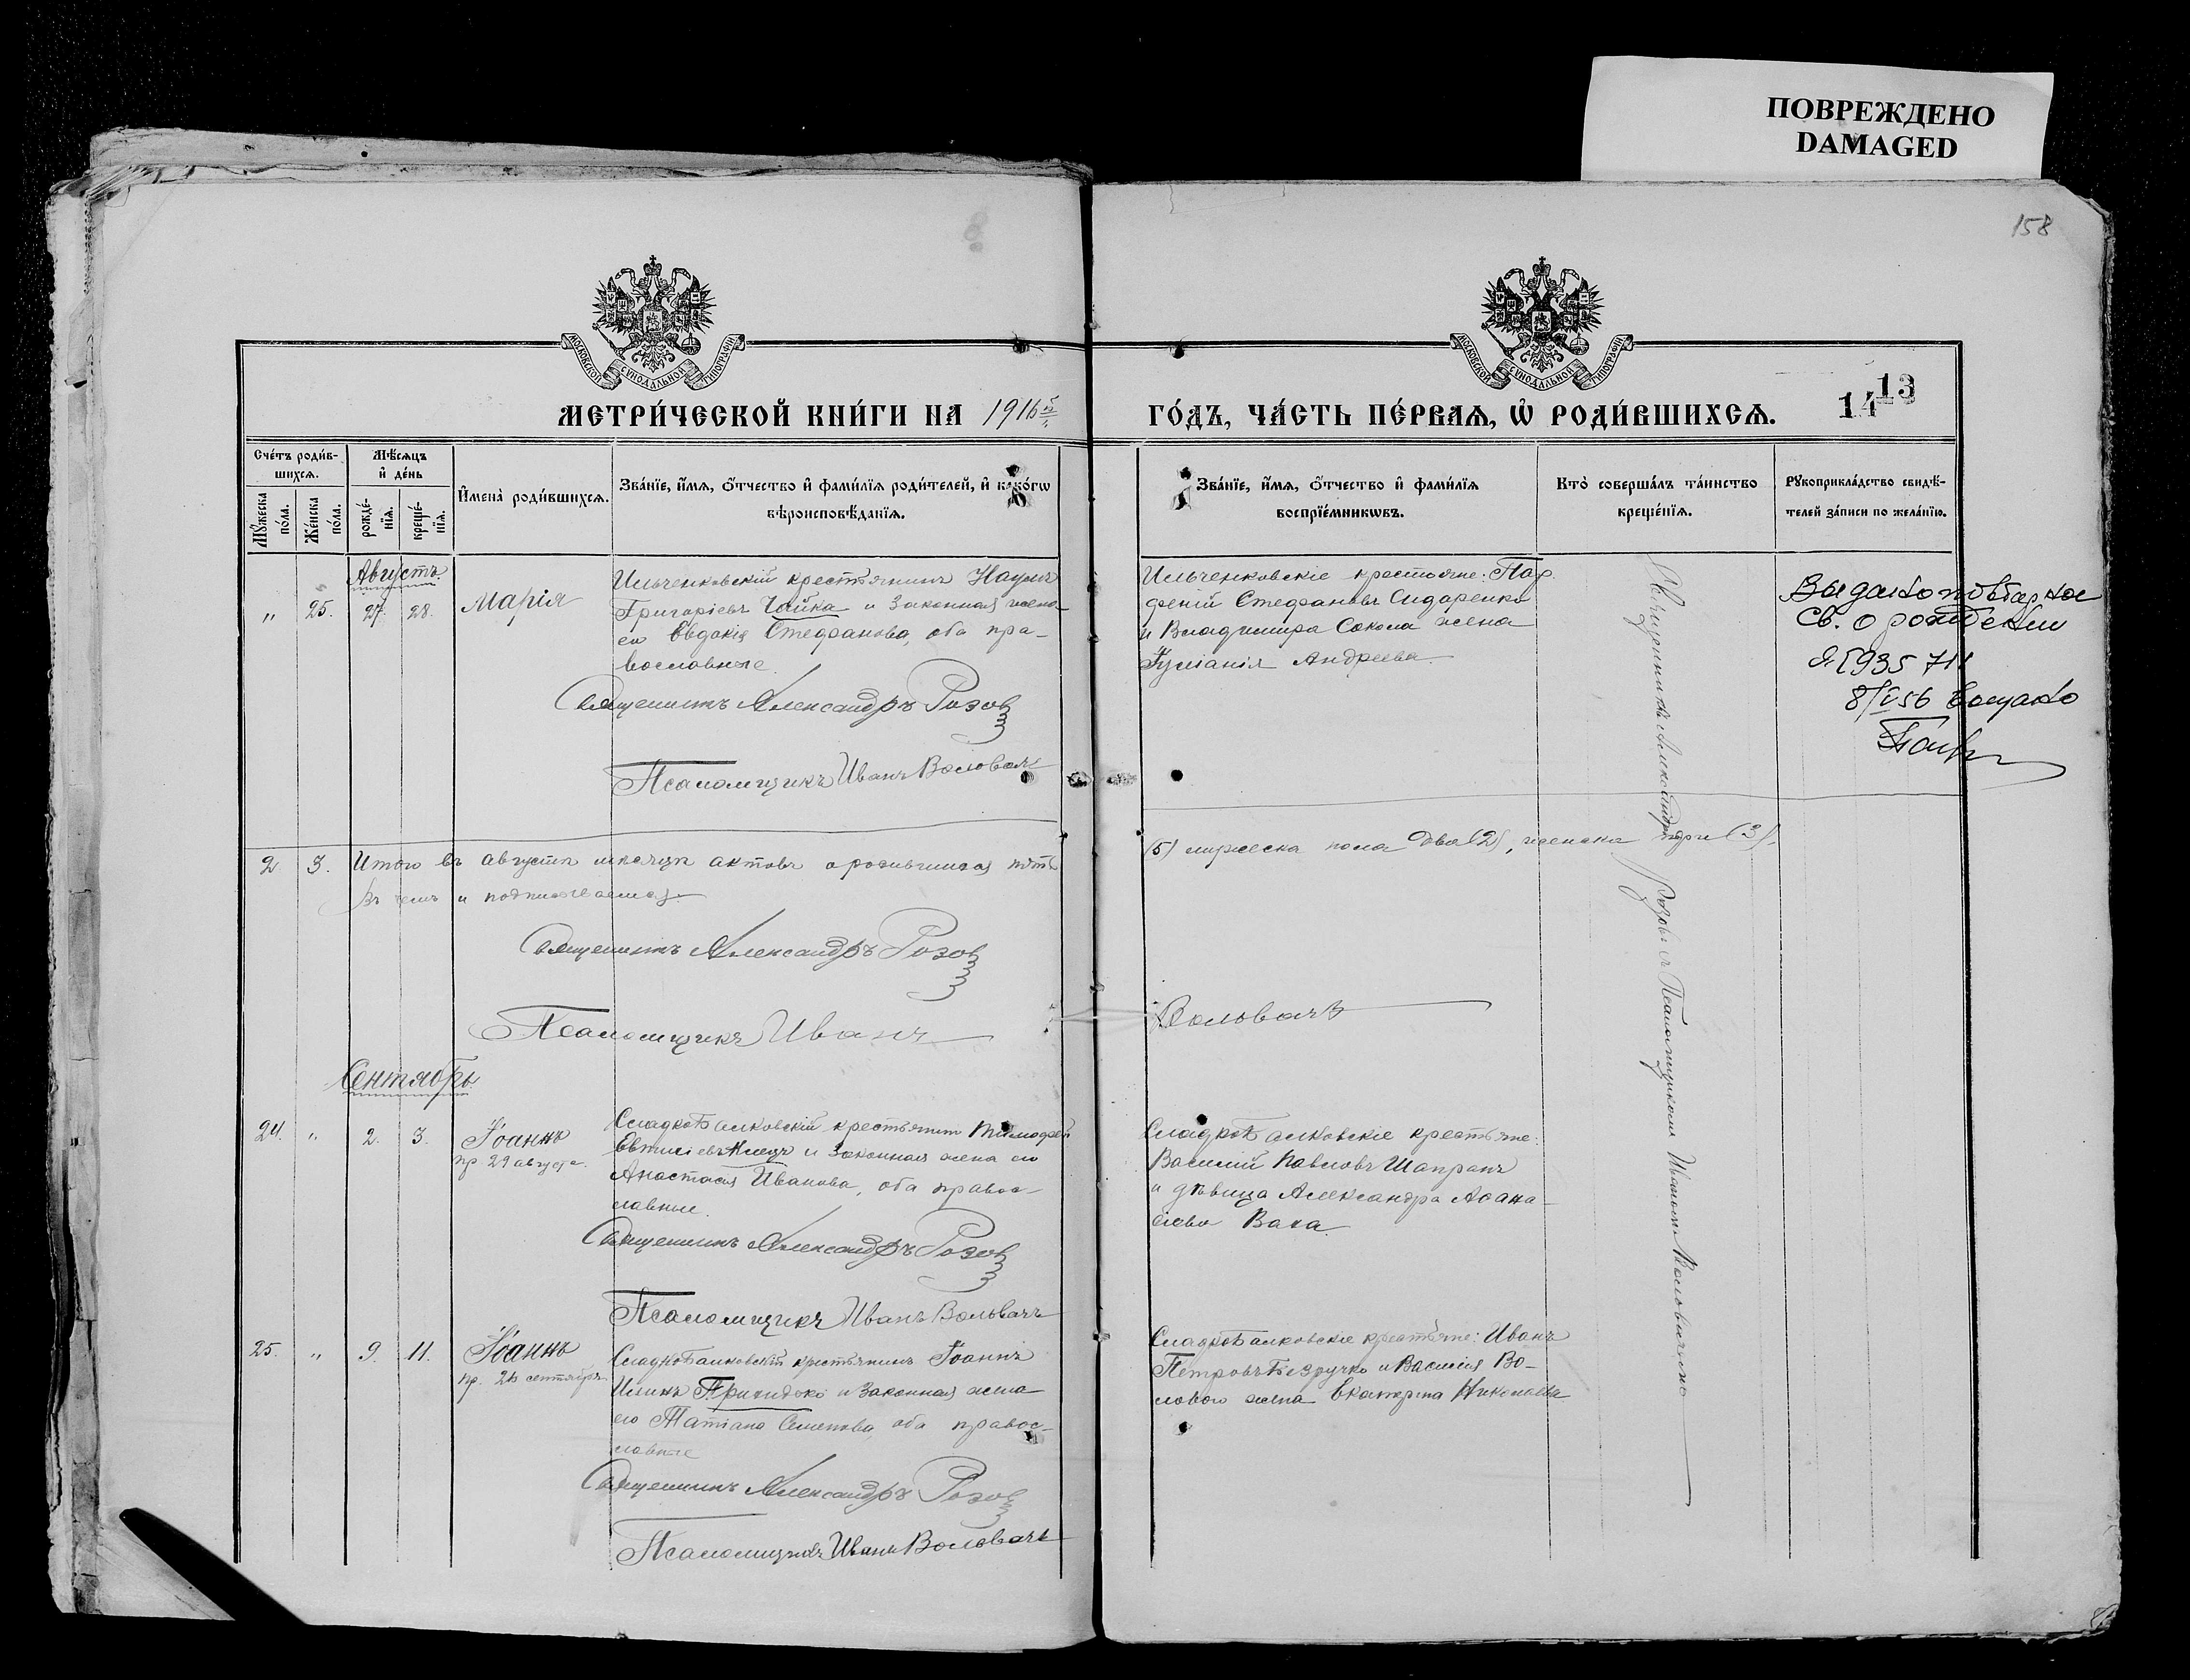 ПОВРЕЖДЕНО
DAMAGED
158
МОСКОВСКОЙ СУНОДАЛЬНОЙ ТИПОГРАФІИ
МОСКОВСКОЙ СУНОДАЛЬНОЙ ТИПОГРАФІИ
МЕТРИ́ЧЕСКОЙ КНИ́ГИ НА 1916 й
ГО́ДЪ, ЧА́СТЬ ПЕ́РВАѦ, Ѡ РОДИ́ВШИХСѦ.
14 13
Сче́тъ роди́в-
шихсѧ.
Мѹ́жеска
по́ла.
Же́нска
по́ла.
Мѣ́сѧцъ
и҆ де́нь
рожде́-
нїѧ.
креще́-
нїѧ.
И҆мена̀ роди́вшихсѧ.
Зва́нїе, и҆́мѧ, ѻ҆́тчество и҆ фами́лїѧ роди́телей, и҆ како́гѡ
вѣроисповѣ́данїѧ.
Зва́нїе, и҆́мѧ, ѻ҆́тчество и҆ фами́лїѧ
воспрїе́мникѡвъ.
Кто̀ соверша́лъ та́инство
креще́нїѧ.
Рѹкоприкла́дство свидѣ́-
телей за́писи по жела́нїю.
Августъ.
" 25. 27. 28. Марія
Ильченковскій крестьянинъ Наумъ
Григоріевъ Чайка и законная жена
его Евдокія Стефанова, оба пра-
вославные.
Священникъ Александръ Розовъ
Псаломщикъ Иванъ Воловачъ
Ильченковскіе крестьяне: Пар-
феній Стефановъ Сидаренко
и Владимира Сокола жена
Іуліанія Андреева.
Выдано повторное
Св. о рождении
8/V 56
2 3. Итого въ августѣ мѣсяцѣ актовъ о родившихся пять
(5) мужеска пола два (2), женска три (3).
въ чемъ и подписываемся.
Священникъ Александръ Розовъ
Псаломщикъ Иванъ Воловачъ
Сентябрь.
24. " 2. 3. Іоаннъ
пр 29 августа.
Сладкобалковскій крестьянинъ Тимофей
Евтихіевъ и законная жена его
Анастасія Иванова, оба правос-
лавные.
Священникъ Александръ Розовъ
Псаломщикъ Иванъ Воловачъ
Сладкобалковскіе крестьяне:
Василий Павловъ Шапранъ
и дѣвица Александра Афана-
сіева Вака.
25. " 9. 11. Іоаннъ
пр. 26 сентября.
Сладкобалковскій крестьянинъ Іоаннъ
Илiинъ Приходько и законная жена
его Татіана Семенова, оба правос-
лавные
Священникъ Александръ Розовъ
Псаломщикъ Иванъ Воловачъ
Сладкобалковскіе крестьяне: Иванъ
Петровъ Безручко и Василія Во-
лового жена Екатерина Николаева
Священникъ Александръ Розовъ съ Псаломщикомъ Иваномъ Воловачемъ